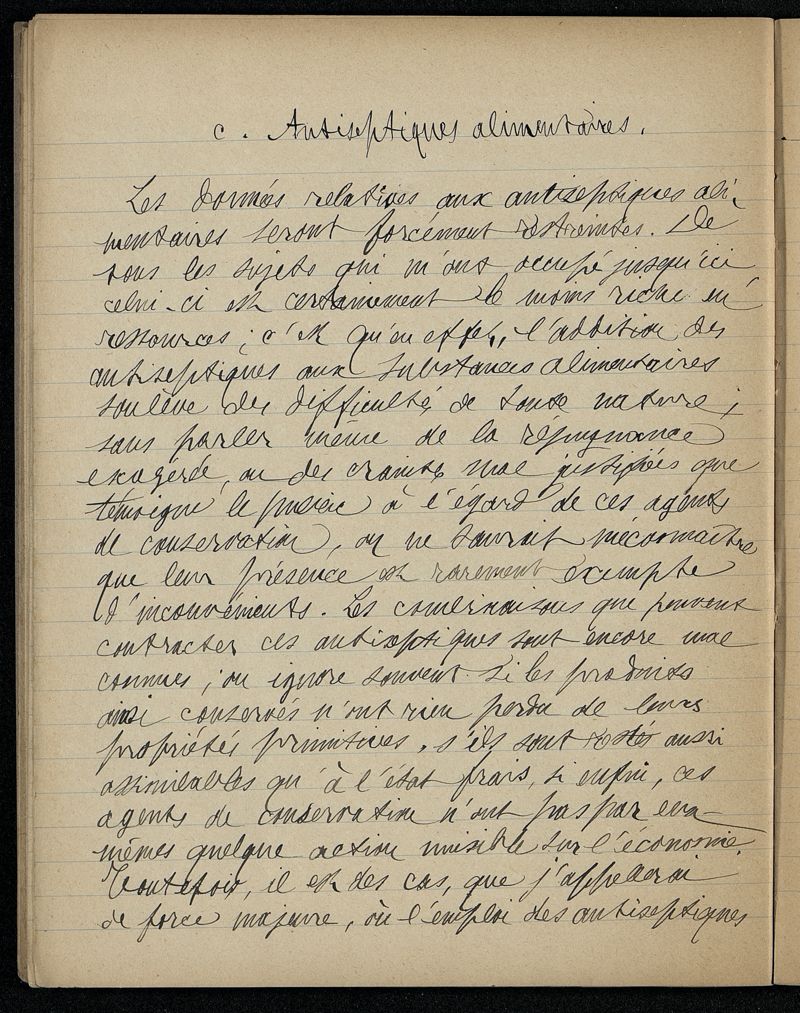 c. Antiseptiques alimentaires.
Les données relatives aux antiseptiques ali-
mentaires seront forcément restreintes. De
tous les sujets qui m'ont occupé jusqu'ici
celui-ci est certainement le moins riche en
ressources ; c'est qu'en effet, l'addition des
antiseptiques aux substances alimentaires
soulève des difficultés de toute nature ;
sans parler même de la répugnance
exagérée, ou des craintes mal justifiées que
témoigne le public à l'égard de ces agents
de conservation, on ne saurait méconnaître
que leur présence est rarement exempte
d'inconvénients. Les combinaisons que peuvent
contracter ces antiseptiques sont encore mal
connues ; on ignore souvent si les produits
ainsi conservés n'ont rien perdu de leurs
propriétés primitives, s'ils sont restés aussi
assimilables qu'à l'état frais, si enfin, ces
agents de conservation n'ont pas par eux-
mêmes quelque action nuisible sur l'économie.
Toutefois, il est des cas, que j'appellerai
de force majeure, où l'emploi des antiseptiques